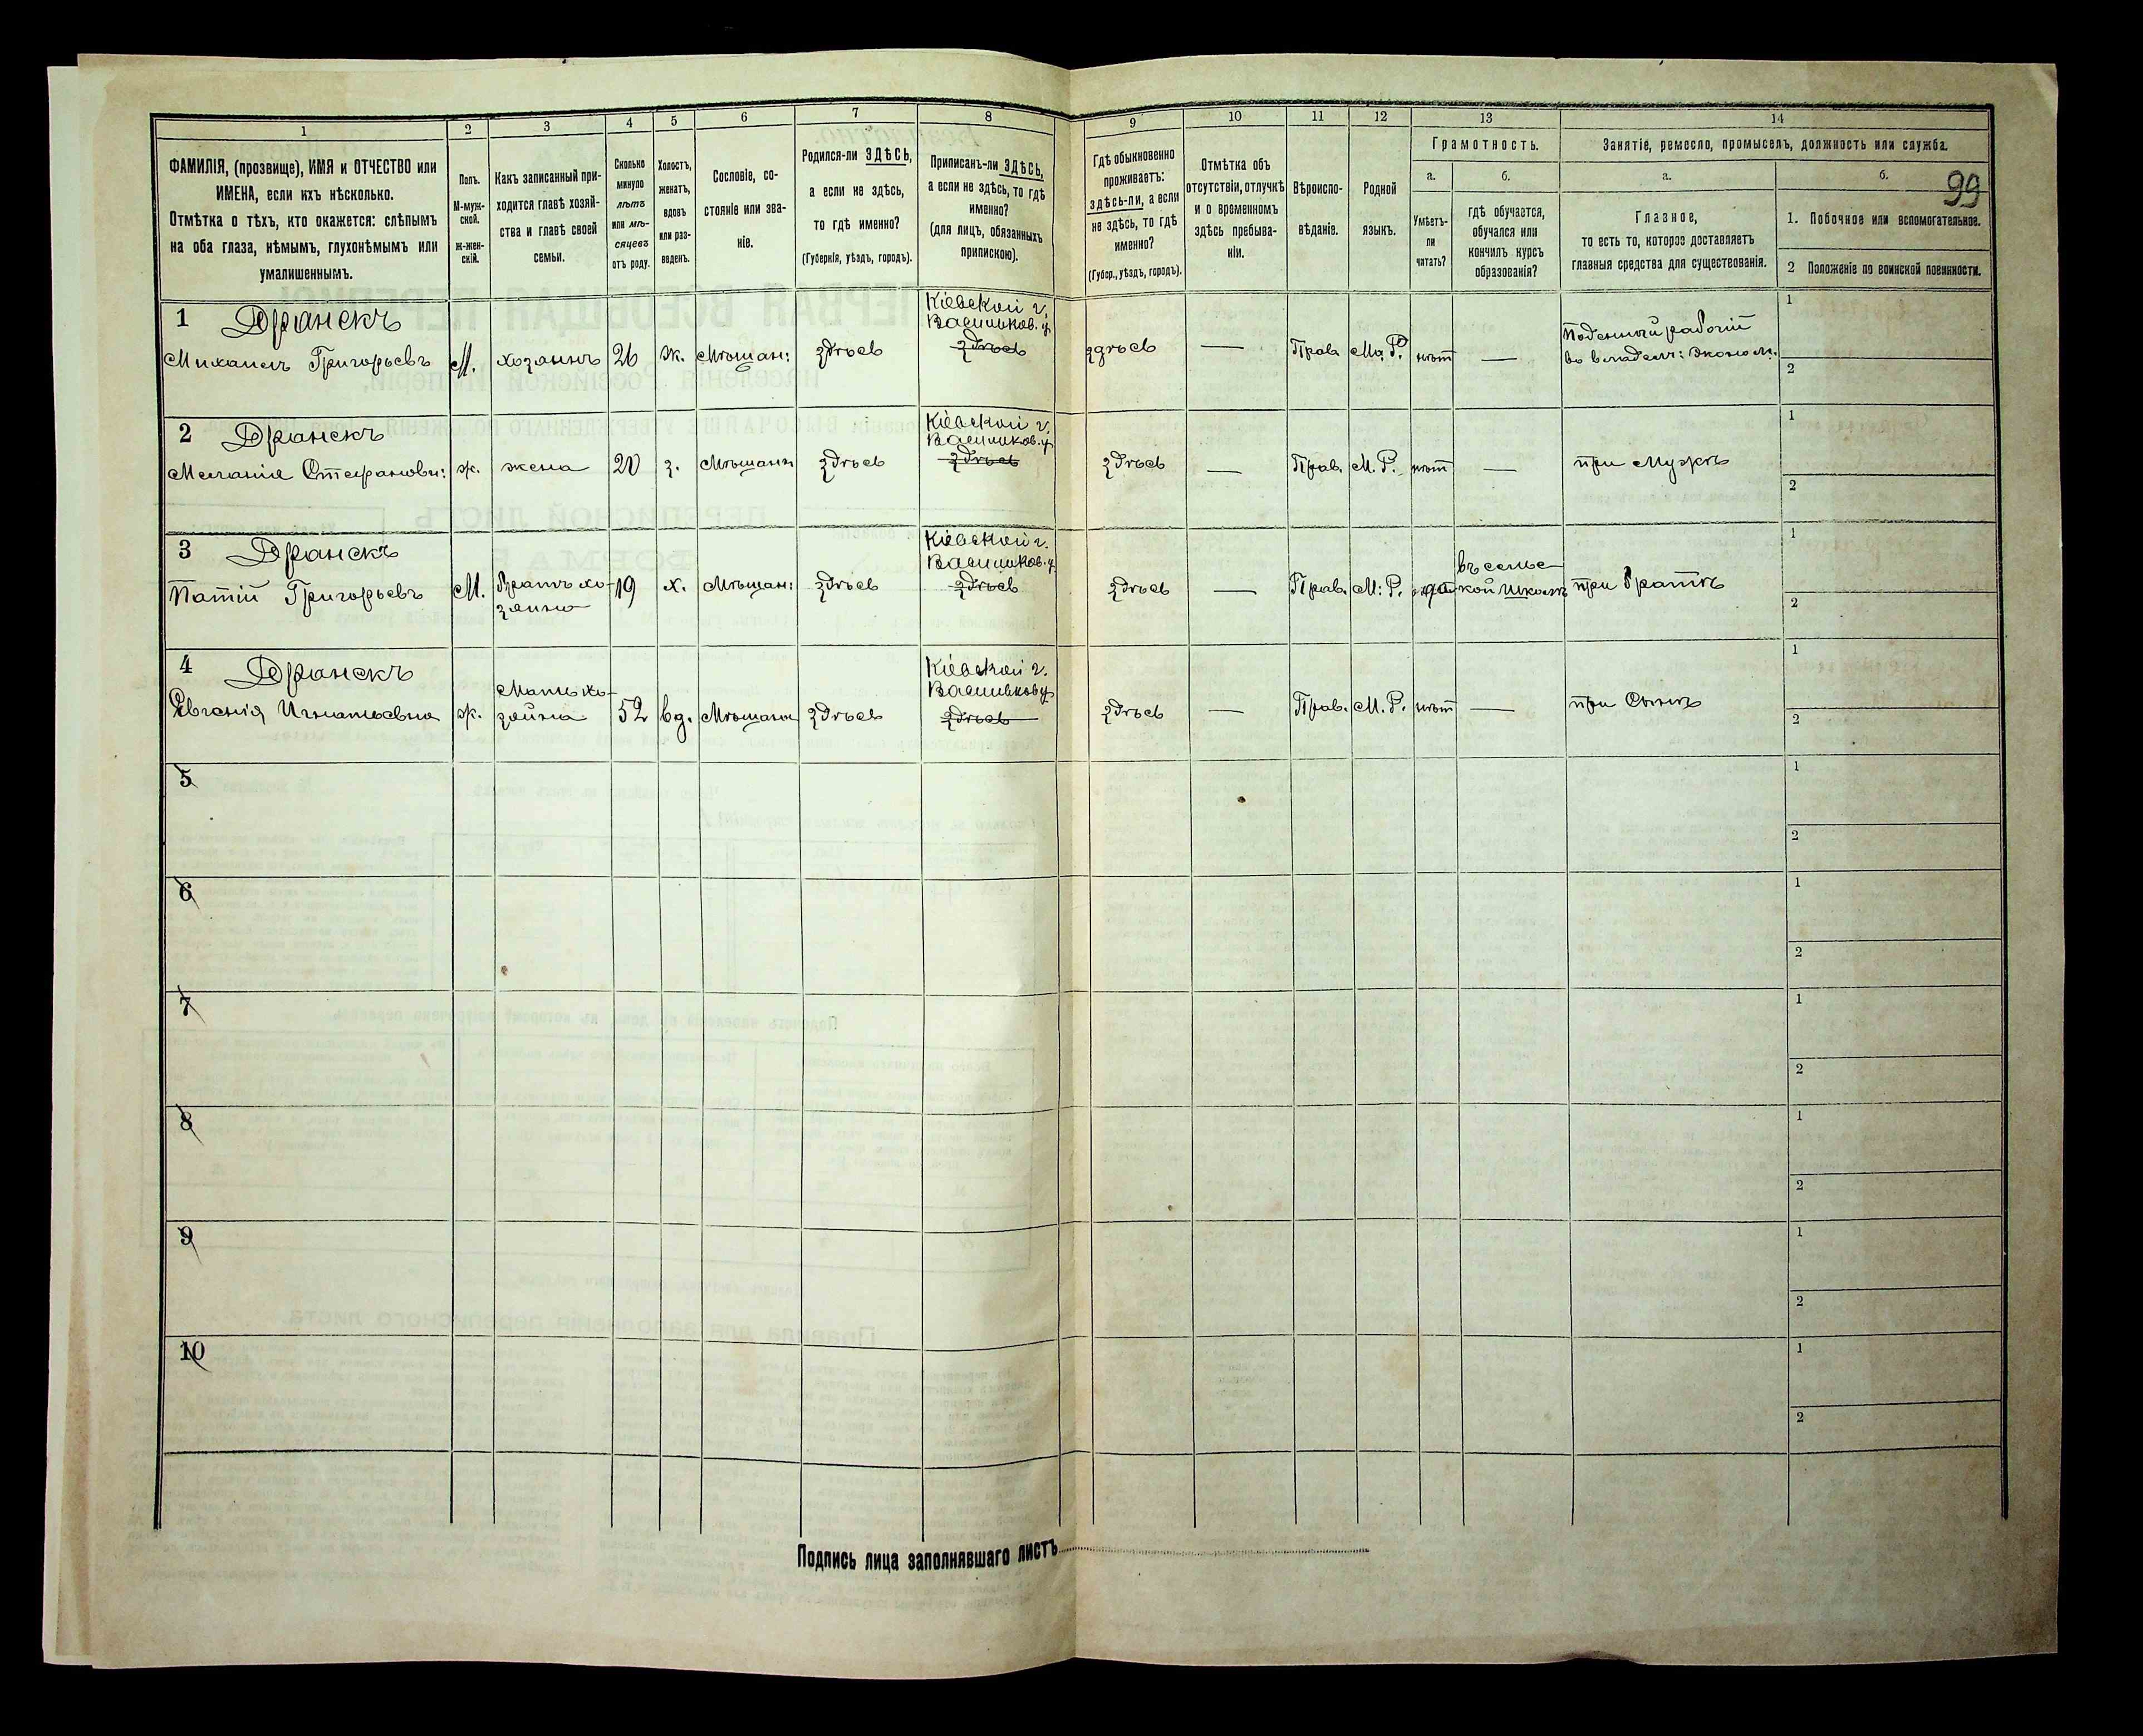 1 2 3 4 5 6 7 8 9 10 11 12 13 14
ФАМИЛІЯ, (прозвище), ИМЯ и ОТЧЕСТВО или
ИМЕНА, если ихъ нѣсколько.
Отмѣтка о тѣхъ, кто окажется: слѣпымъ
на оба глаза, нѣмымъ, глухонѣмымъ или
умалишеннымъ.
Полъ.
М-муж-
ской.
ж-жен-
скій.
Какъ записанный при-
ходится главѣ хозяй-
ства и главѣ своей
семьи.
Сколько
минуло
лѣтъ
или мѣ-
сяцевъ
отъ роду.
Холостъ,
женатъ,
вдовъ
или раз-
веденъ.
Сословіе, со-
стояніе или зва-
ніе.
Родился-ли ЗДѢСЬ,
а если не здѣсь,
то гдѣ именно?
(Губернія, уѣздъ, городъ).
Приписанъ-ли ЗДѢСЬ,
а если не здѣсь, то гдѣ
именно?
(для лицъ, обязанныхъ
припискою).
Гдѣ обыкновенно
проживаетъ:
здѣсь-ли, а если
не здѣсь, то гдѣ
именно?
(Губер., уѣздъ, городъ).
Отмѣтка объ
отсутствіи, отлучкѣ
и о временномъ
здѣсь пребыва-
ніи.
Вѣроиспо-
вѣданіе.
Родной
языкъ.
Грамотность.
а.
Умѣетъ-
ли
читать?
б.
гдѣ обучается,
обучался или
кончилъ курсъ
образованія?
Занятіе, ремесло, промыселъ, должность или служба.
а.
Главное,
то есть то, которое доставляетъ
главныя средства для существованія.
б.
99
1. Побочное или вспомогательное.
2 Положеніе по воинской повинности.
1 Дранскъ
Михаилъ Григорьевъ
М.
хозяинъ
26
ж.
Мѣщан:
здѣсь
Кіевской г.
Васильков. у.
здѣсь
здѣсь
—
Прав.
Ма. Р.
нѣт
—
Поденный рабочій
во владѣлч: эконом.
1
2
2 Дранскъ
Меланія Стефанови:
ж.
жена
20
з.
Мѣщанк
здѣсь
Кіевской г.
Васильков. у
здѣсь
здѣсь
—
Прав.
М. Р.
нѣт
—
при Мужѣ
1
2
3 Дранскъ
Григорьевъ
М.
Братъ хо-
зяина
19
х.
Мѣщан:
здѣсь
Кіевской г.
Васильков. у
здѣсь
здѣсь
—
Прав.
М: Р.
да
въ сельс-
кой школѣ
при Братѣ
1
2
4 Дранскъ
Евгенія Игнатьевна
ж.
Мать хо-
зяина
52
вд.
Мѣщанк
здѣсь
Кіевской г.
Васильков у
здѣсь
здѣсь
—
Прав.
М. Р.
нѣт
—
при Сынѣ
1
2
5
1
2
6
1
2
7
1
2
8
1
2
9
1
2
10
1
2
Подпись лица заполнявшаго листъ